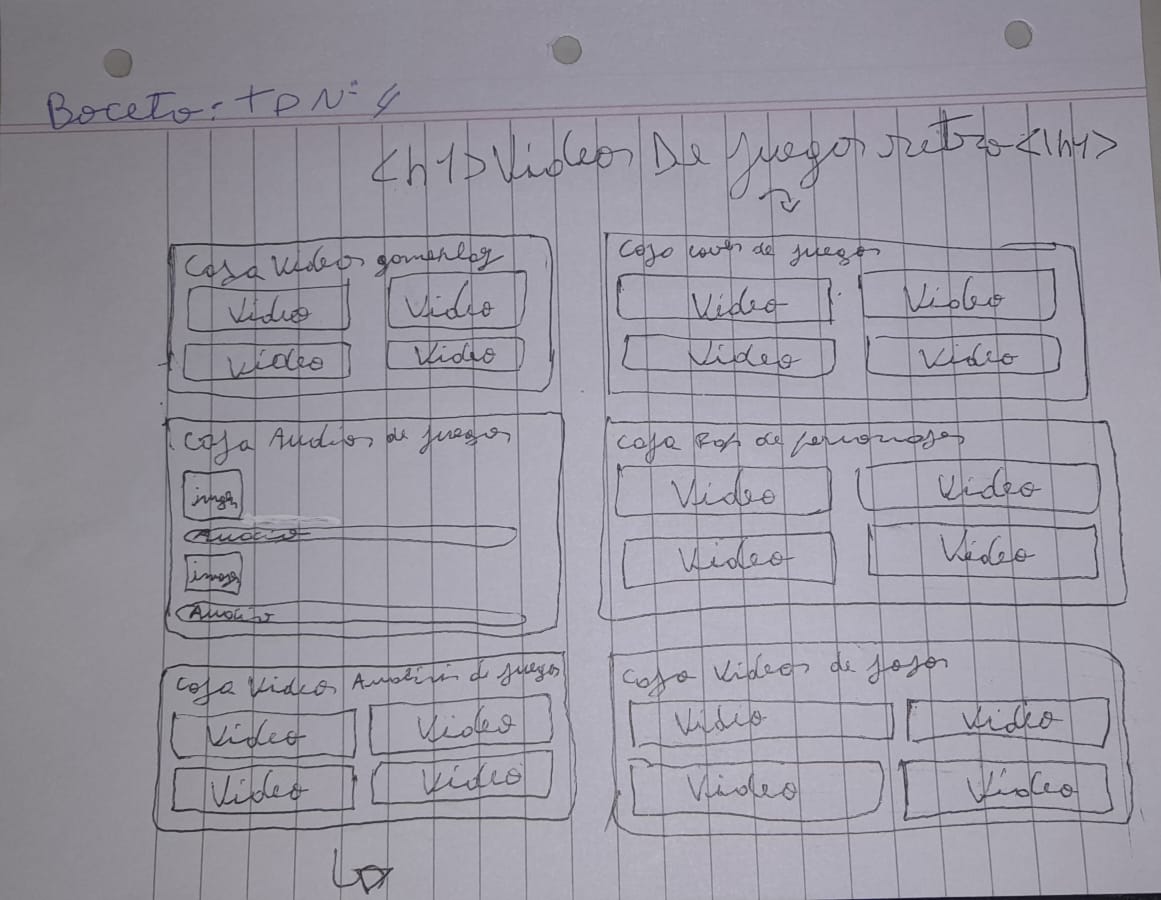 Boceto: TP Nº 4
<h1>Videos De juegos retro<\h1>
Caja Videos gameplay
Video Video
Video Video
Caja cover de juegos
Video Video
Video Video
Caja Audios de juegos
imagen
Audio
imagen
Audio
Caja Rap de personajes
Video Video
Video Video
Caja Videos Analisis de juegos
Video Video
Video Video
Caja Videos de jojos
Video Video
Video Video